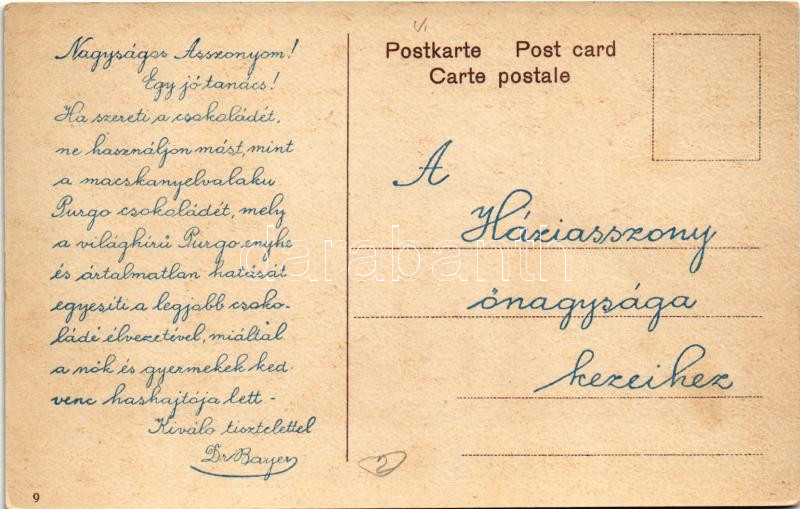 Nagyságos Asszonyom!
Egy jó tanács!
Ha szereti a csokoládét,
ne használjon mást, mint
a macskanyelvalaku
Purgo csokoládét, mely
a világhirű Purgo enyhe
és ártalmatlan hatását
egyesíti a legjobb csoko-
ládé élvezetével, miáltal
a nők és gyermekek ked-
venc hashajtója lett -
Kiváló tisztelettel
Dr Bayer
9
Postkarte Post card
Carte postale
A
Háziasszony
önagysága
kezeihez
2
darabanth